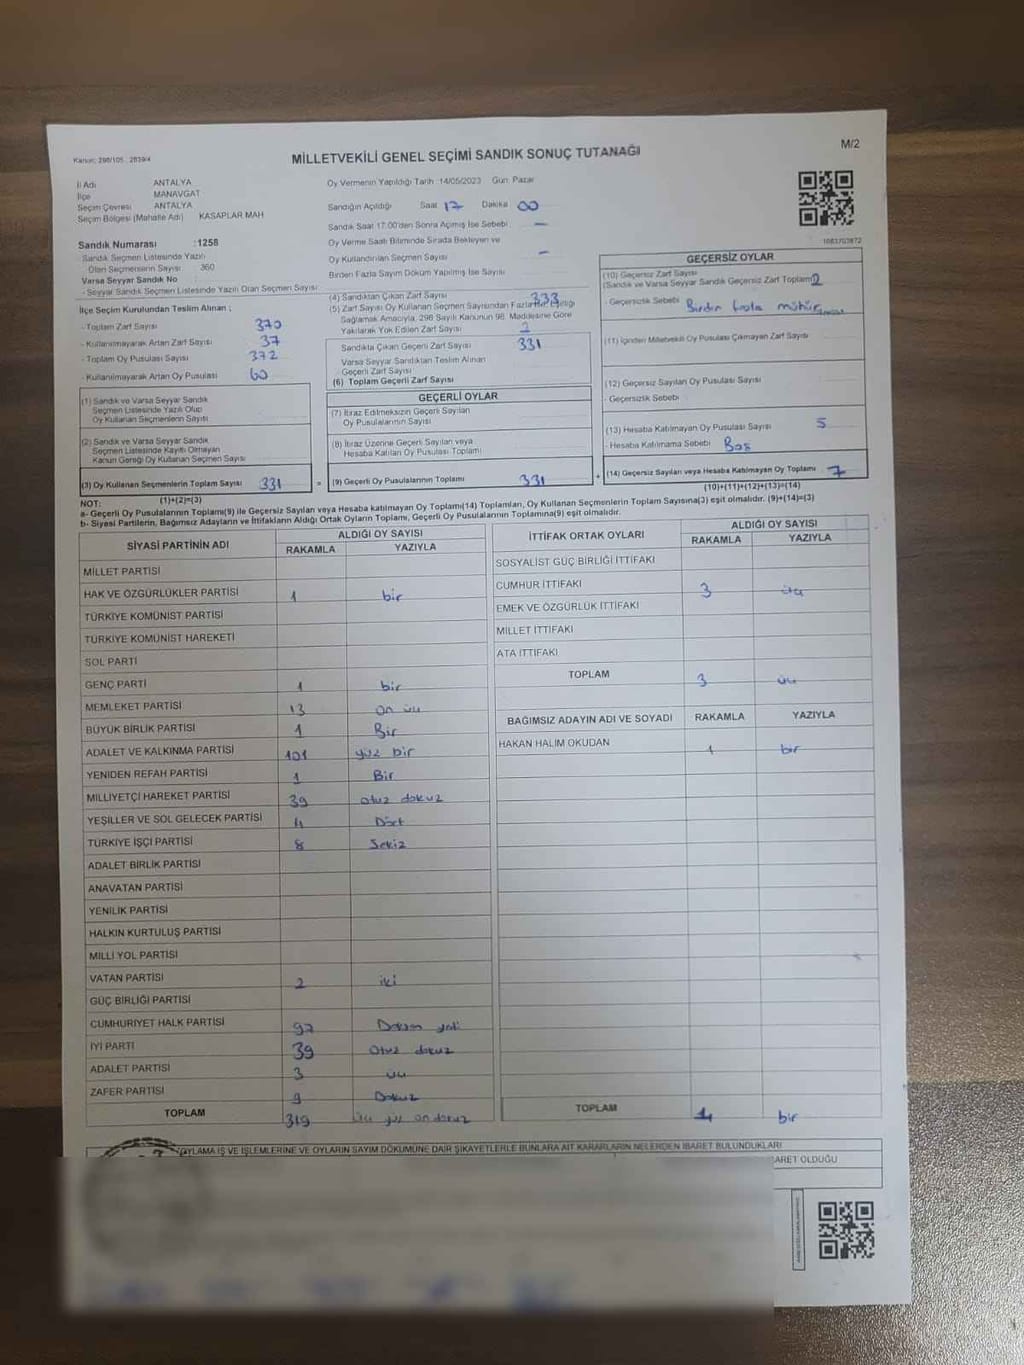 Kanun: 298/105, 2839/4
MİLLETVEKİLİ GENEL SEÇİMİ SANDIK SONUÇ TUTANAĞI
M/2
İl Adı ANTALYA
İlçe MANAVGAT
Seçim Çevresi ANTALYA
Seçim Bölgesi (Mahalle Adı) KASAPLAR MAH
Sandık Numarası : 1258
- Sandık Seçmen Listesinde Yazılı
Olan Seçmenlerin Sayısı 360
Varsa Seyyar Sandık No
- Seyyar Sandık Seçmen Listesinde Yazılı Olan Seçmen Sayısı
Oy Vermenin Yapıldığı Tarih 14/05/2023 Gün: Pazar
Sandığın Açıldığı Saat 17 Dakika 00
Sandık Saat 17:00'den Sonra Açılmış İse Sebebi —
Oy Verme Saati Bitiminde Sırada Bekleyen ve
Oy Kullandırılan Seçmen Sayısı —
Birden Fazla Sayım Döküm Yapılmış İse Sayısı
1083703872
İlçe Seçim Kurulundan Teslim Alınan ;
- Toplam Zarf Sayısı 370
- Kullanılmayarak Artan Zarf Sayısı 37
- Toplam Oy Pusulası Sayısı 372
- Kullanılmayarak Artan Oy Pusulası 60
(1) Sandık ve Varsa Seyyar Sandık
Seçmen Listesinde Yazılı Olup
Oy Kullanan Seçmenlerin Sayısı
(2) Sandık ve Varsa Seyyar Sandık
Seçmen Listesinde Kayıtlı Olmayan
Kanun Gereği Oy Kullanan Seçmen Sayısı
(3) Oy Kullanan Seçmenlerin Toplam Sayısı 331
(1)+(2)=(3)
(4) Sandıktan Çıkan Zarf Sayısı 333
(5) Zarf Sayısı Oy Kullanan Seçmen Sayısından Fazla İse, Eşitliği
Sağlamak Amacıyla, 298 Sayılı Kanunun 98. Maddesine Göre
Yakılarak Yok Edilen Zarf Sayısı 2
Sandıkta Çıkan Geçerli Zarf Sayısı 331
Varsa Seyyar Sandıktan Teslim Alınan
Geçerli Zarf Sayısı
(6) Toplam Geçerli Zarf Sayısı
GEÇERLİ OYLAR
(7) İtiraz Edilmeksizin Geçerli Sayılan
Oy Pusulalarının Sayısı
(8) İtiraz Üzerine Geçerli Sayılan veya
Hesaba Katılan Oy Pusulası Toplamı
= (9) Geçerli Oy Pusulalarının Toplamı 331 +
GEÇERSİZ OYLAR
(10) Geçersiz Zarf Sayısı
(Sandık ve Varsa Seyyar Sandık Geçersiz Zarf Toplamı) 2
- Geçersizlik Sebebi Birden fazla mühür
(11) İçinden Milletvekili Oy Pusulası Çıkmayan Zarf Sayısı
(12) Geçersiz Sayılan Oy Pusulası Sayısı
- Geçersizlik Sebebi
(13) Hesaba Katılmayan Oy Pusulası Sayısı 5
- Hesaba Katılmama Sebebi Boş
(14) Geçersiz Sayılan veya Hesaba Katılmayan Oy Toplamı 7
(10)+(11)+(12)+(13)=(14)
NOT:
a- Geçerli Oy Pusulalarının Toplamı(9) ile Geçersiz Sayılan veya Hesaba katılmayan Oy Toplamı(14) Toplamları, Oy Kullanan Seçmenlerin Toplam Sayısına(3) eşit olmalıdır. (9)+(14)=(3)
b- Siyasi Partilerin, Bağımsız Adayların ve İttifakların Aldığı Ortak Oyların Toplamı, Geçerli Oy Pusulalarının Toplamına(9) eşit olmalıdır.
SİYASİ PARTİNİN ADI ALDIĞI OY SAYISI
RAKAMLA YAZIYLA
MİLLET PARTİSİ
HAK VE ÖZGÜRLÜKLER PARTİSİ 1 bir
TÜRKİYE KOMÜNİST PARTİSİ
TÜRKİYE KOMÜNİST HAREKETİ
SOL PARTİ
GENÇ PARTİ 1 bir
MEMLEKET PARTİSİ 13 on üç
BÜYÜK BİRLİK PARTİSİ 1 Bir
ADALET VE KALKINMA PARTİSİ 101 yüz bir
YENİDEN REFAH PARTİSİ 1 Bir
MİLLİYETÇİ HAREKET PARTİSİ 39 otuz dokuz
YEŞİLLER VE SOL GELECEK PARTİSİ 4 Dört
TÜRKİYE İŞÇİ PARTİSİ 8 Sekiz
ADALET BİRLİK PARTİSİ
ANAVATAN PARTİSİ
YENİLİK PARTİSİ
HALKIN KURTULUŞ PARTİSİ
MİLLİ YOL PARTİSİ
VATAN PARTİSİ 2 iki
GÜÇ BİRLİĞİ PARTİSİ
CUMHURİYET HALK PARTİSİ 97 Doksan yedi
İYİ PARTİ 39 Otuz dokuz
ADALET PARTİSİ 3 üç
ZAFER PARTİSİ 9 Dokuz
TOPLAM 319 üç yüz on dokuz
İTTİFAK ORTAK OYLARI ALDIĞI OY SAYISI
RAKAMLA YAZIYLA
SOSYALİST GÜÇ BİRLİĞİ İTTİFAKI
CUMHUR İTTİFAKI 3 üç
EMEK VE ÖZGÜRLÜK İTTİFAKI
MİLLET İTTİFAKI
ATA İTTİFAKI
TOPLAM 3 üç
BAĞIMSIZ ADAYIN ADI VE SOYADI RAKAMLA YAZIYLA
HAKAN HALİM OKUDAN 1 bir
TOPLAM 1 bir
OYLAMA İŞ VE İŞLEMLERİNE VE OYLARIN SAYIM DÖKÜMÜNE DAİR ŞİKAYETLERLE BUNLARA AİT KARARLARIN NELERDEN İBARET BULUNDUKLARI
OLDUĞU